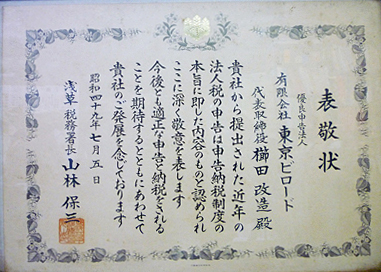 表敬状
優良申告法人
有限会社 東京ビロード
代表取締役 櫛田改造 殿
貴社から提出された近年の
法人税の申告は申告納税制度の
本旨に即した内容のものと認められ
ここに深く敬意を表します
今後とも適正な申告と納税をされる
ことを期待するとともにあわせて
貴社のご発展を念じております
昭和四十九年七月五日
浅草税務署長 山林保三